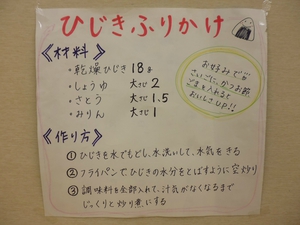 ひじきふりかけ
《材料》
・乾燥ひじき 18g
・しょうゆ 大さじ 2
・さとう 大さじ 1.5
・みりん 大さじ 1
お好みで!!
さいごに、かつお節
ごまを入れると
おいしさUP!!
《作り方》
①ひじきを水でもどし、水洗いして、水気をきる
②フライパンで、ひじきの水分をとばすように空炒り
③調味料を全部入れて、汁気がなくなるまで
じっくりと炒り煮にする